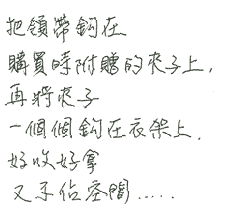 把領帶鈎在
購買時附贈的夾子上,
再將夾子
一個個鈎在衣架上.
好收好拿
又不佔空間.....